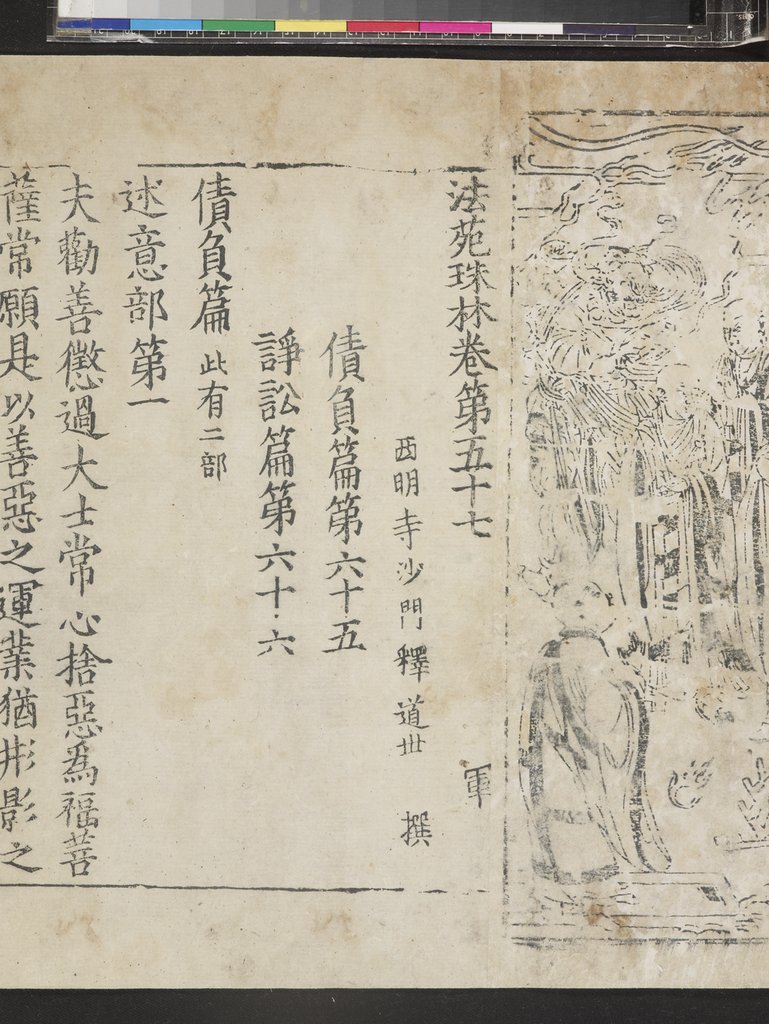 法苑珠林卷第五十七 軍
西明寺沙門釋道世 撰
債負篇第六十五
諍訟篇第六十六
債負篇 此有二部
述意部第一
夫勸善懲過大士常心捨惡為福菩
薩常願是以善惡之運業猶形影之